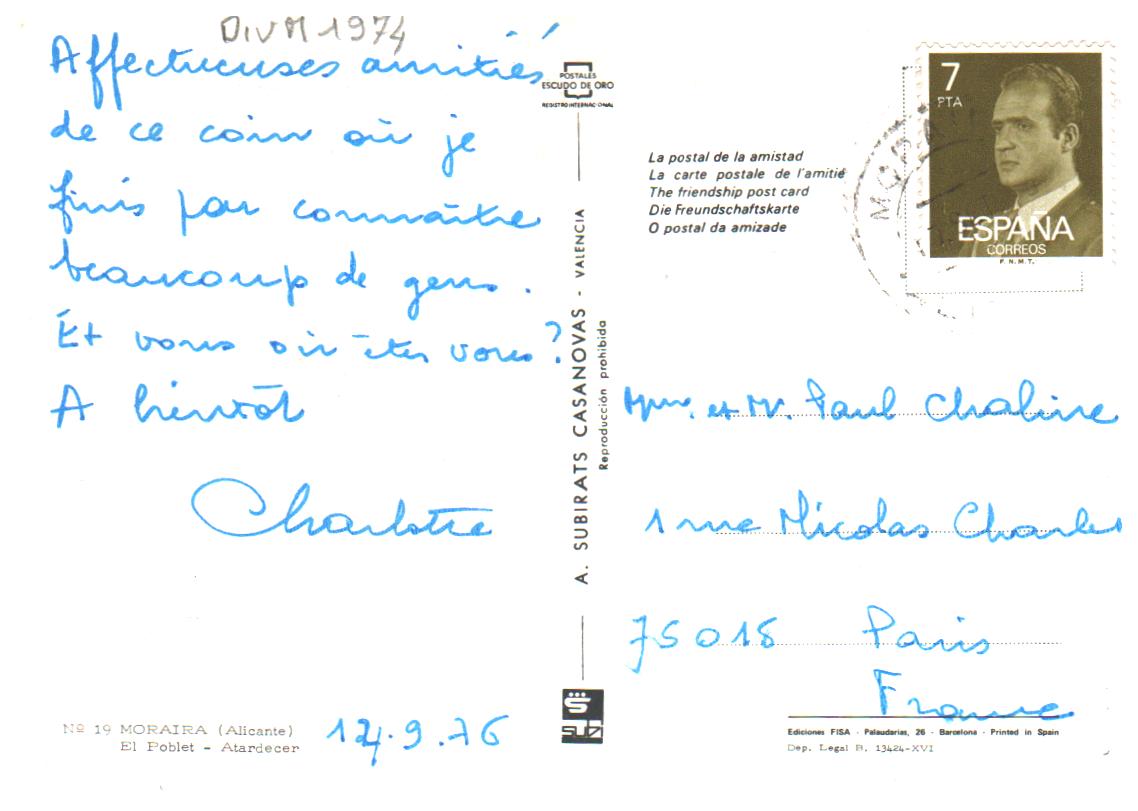 DIVM 1974
Affectueuses amitiés
de ce coin où je
finis par connaître
beaucoup de gens.
Et vous où êtes vous?
A bientôt
Charlotte
Nº 19 MORAIRA (Alicante)
El Poblet - Atardecer
12.9.76
POSTALES
ESCUDO DE ORO
REGISTRO INTERNACIONAL
A. SUBIRATS CASANOVAS - VALENCIA
Reproducción prohibida
SUBI
La postal de la amistad
La carte postale de l'amitié
The friendship post card
Die Freundschaftskarte
O postal da amizade
7
PTA
ESPAÑA
CORREOS
F.N.M.T.
Mme. et Mr. Paul Chaline
1 rue Nicolas Charlet
75015 Paris
France
Ediciones FISA - Palaudarias, 26 - Barcelona - Printed in Spain
Dep. Legal B. 13424-XVI